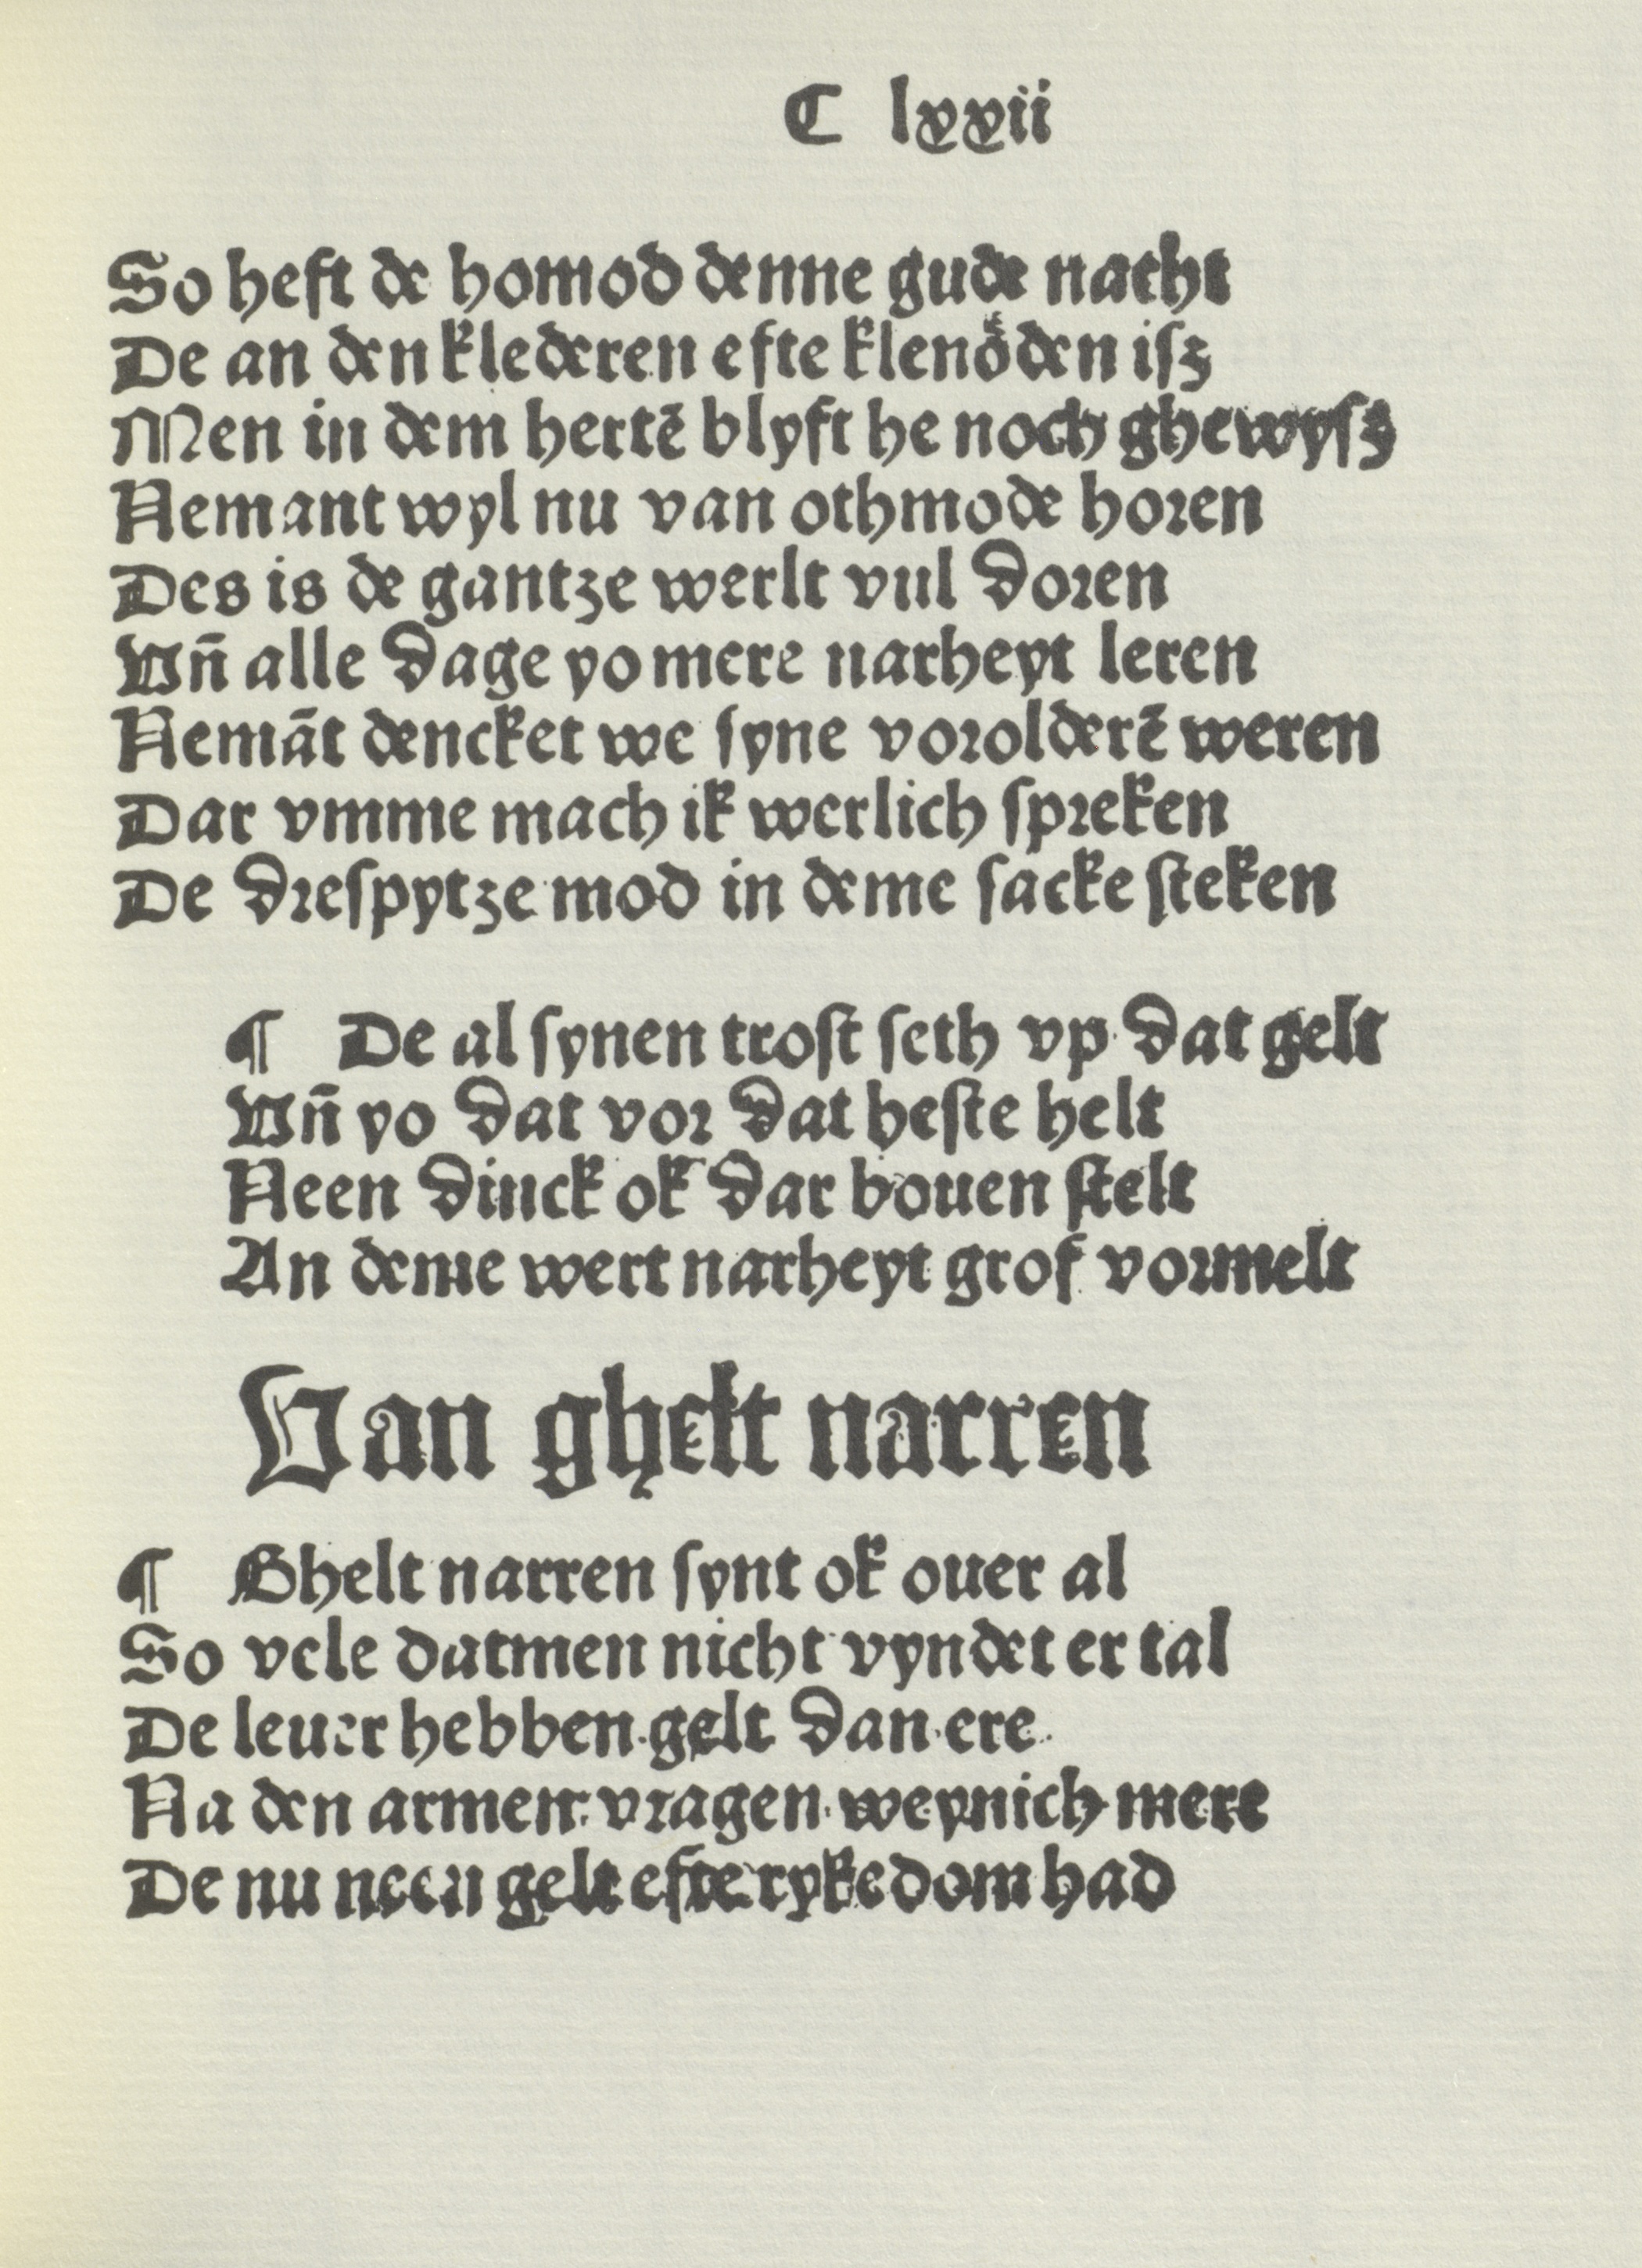 C lxxii
So heft de homod denne gude nacht
De an den klederen efte klenoͤden iſz
Men in dem hertē blyft he noch ghewyſz
Nemant wyl nu van othmode horen
Des is de gantze werlt vul doren
Vn̄ alle dage yo mere narheyt leren
Nemāt dencket we ſyne vorolderē weren
Dar vmme mach ik werlich ſpreken
De dreſpytze mod in deme ſacke ſteken
¶ De al ſynen troſt ſeth vp dat gelt
Vn̄ yo dat vor dat beſte helt
Neen dinck ok dar bouen ſtelt
An deme wert narheyt grof vormelt
Van ghelt narren
¶ Ghelt narren ſynt ok ouer al
So vele datmen nicht vyndet er tal
De leuer hebben gelt dan ere
Na den armen vragen weynich mere
De nu neen gelt efte rykedom had